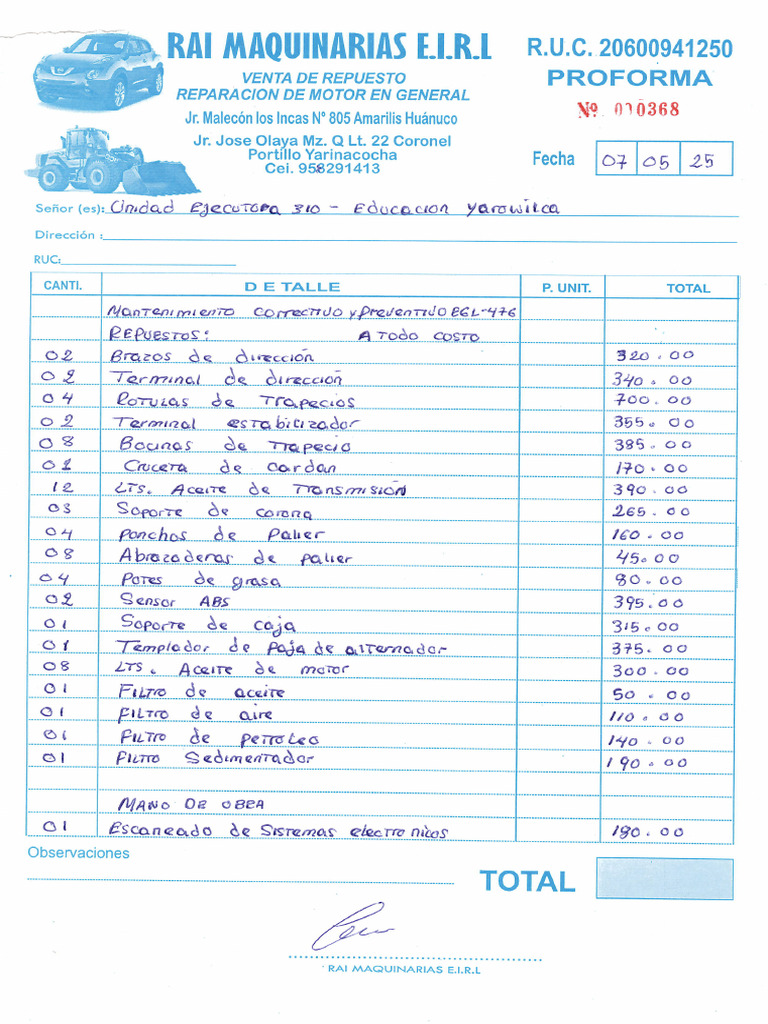 RAI MAQUINARIAS E.I.R.L
VENTA DE REPUESTO
REPARACION DE MOTOR EN GENERAL
Jr. Malecón los Incas Nº 805 Amarilis Huánuco
Jr. Jose Olaya Mz. Q Lt. 22 Coronel
Portillo Yarinacocha
Cei. 958291413
R.U.C. 20600941250
PROFORMA
Nº 000368
Fecha 07 05 25
Señor (es): Unidad Ejecutora 310 - Educacion Yarowilca
Dirección :
RUC:
CANTI. DETALLE P. UNIT. TOTAL
Mantenimiento correctivo y Preventivo EGL-476
REPUESTOS: A TODO COSTO
02 Brazos de dirección 320.00
02 Terminal de dirección 340.00
04 Rotulas de Trapecios 700.00
02 Terminal estabilizador 355.00
08 Bocinas de Trapecio 385.00
01 Cruceta de cardan 170.00
12 LTS. Aceite de Transmisión 390.00
03 Soporte de corona 265.00
04 Ponchos de Palier 160.00
08 Abrazaderas de palier 45.00
04 Potes de grasa 80.00
02 Sensor ABS 395.00
01 Soporte de caja 315.00
01 Templador de faja de alternador 375.00
08 LTS. Aceite de motor 300.00
01 Filtro de aceite 50.00
01 Filtro de aire 110.00
01 Filtro de petroleo 140.00
01 Filtro Sedimentador 190.00
MANO DE OBRA
01 Escaneado de Sistemas electronicos 190.00
Observaciones
TOTAL
RAI MAQUINARIAS E.I.R.L